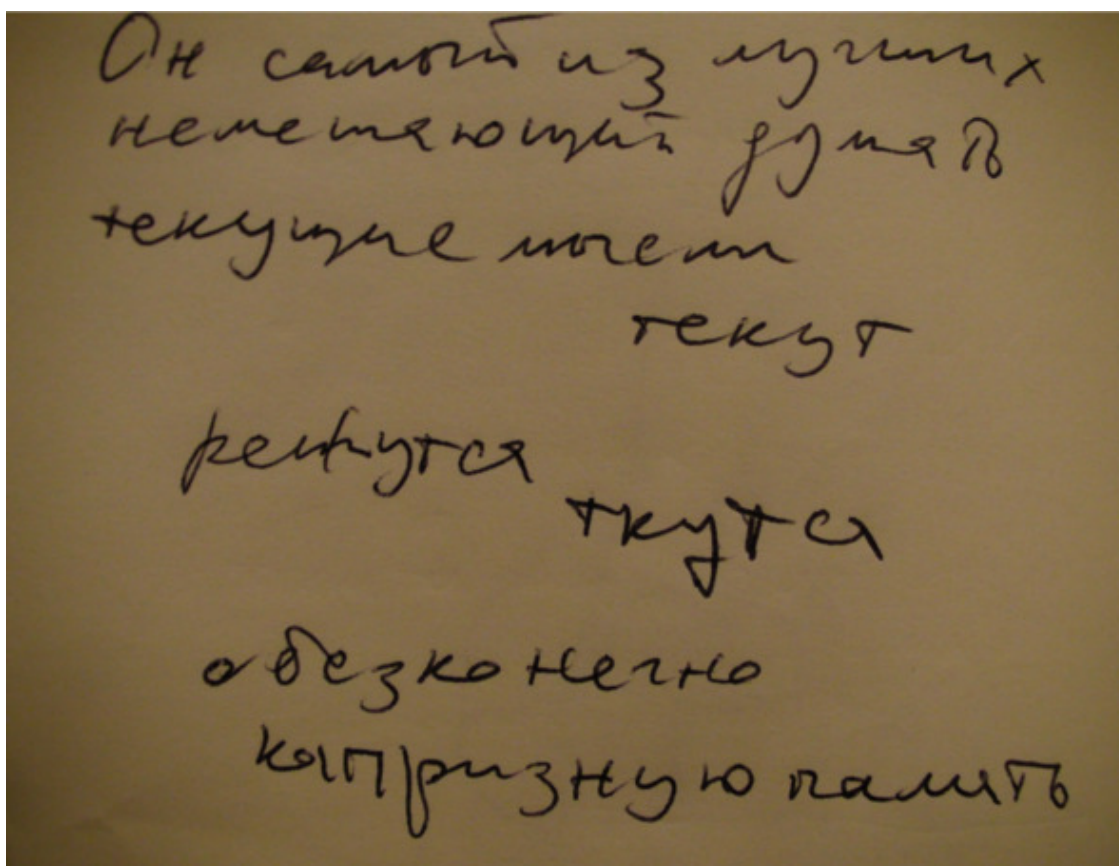 Он самый из лучших
немешающий думать
текущие мысли
текут
ткутся
обезконечно
капризную память